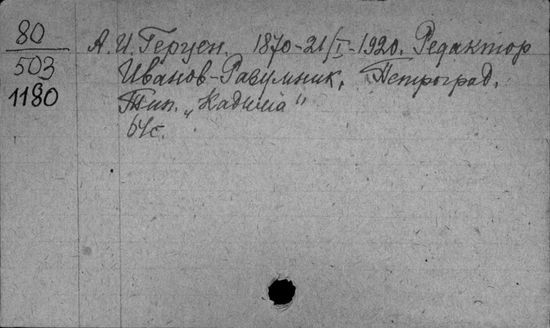 80
503
1180
А. И. Герцен. 1870-21/I-1920. Редактор
Иванов-Разумник. Петроград.
Тип. „Кадима“
64с.